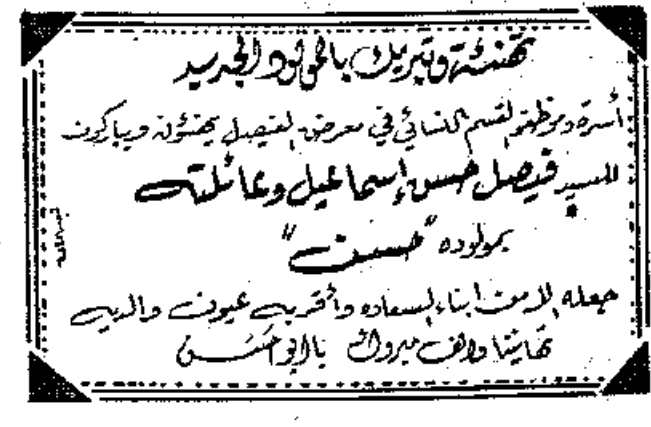 تهنئة وتبريك بالمولود الجديد
أسرة وموظفو القسم النسائي في معرض الفيصل يهنئون ويباركون
للسيد فيصل حسن إسماعيل وعائلته
بمولوده "حسن"
جعله الله من أبناء السعاده وأقر به عيون والديه
تهانينا وألف مبروك يا أبو حَسَن